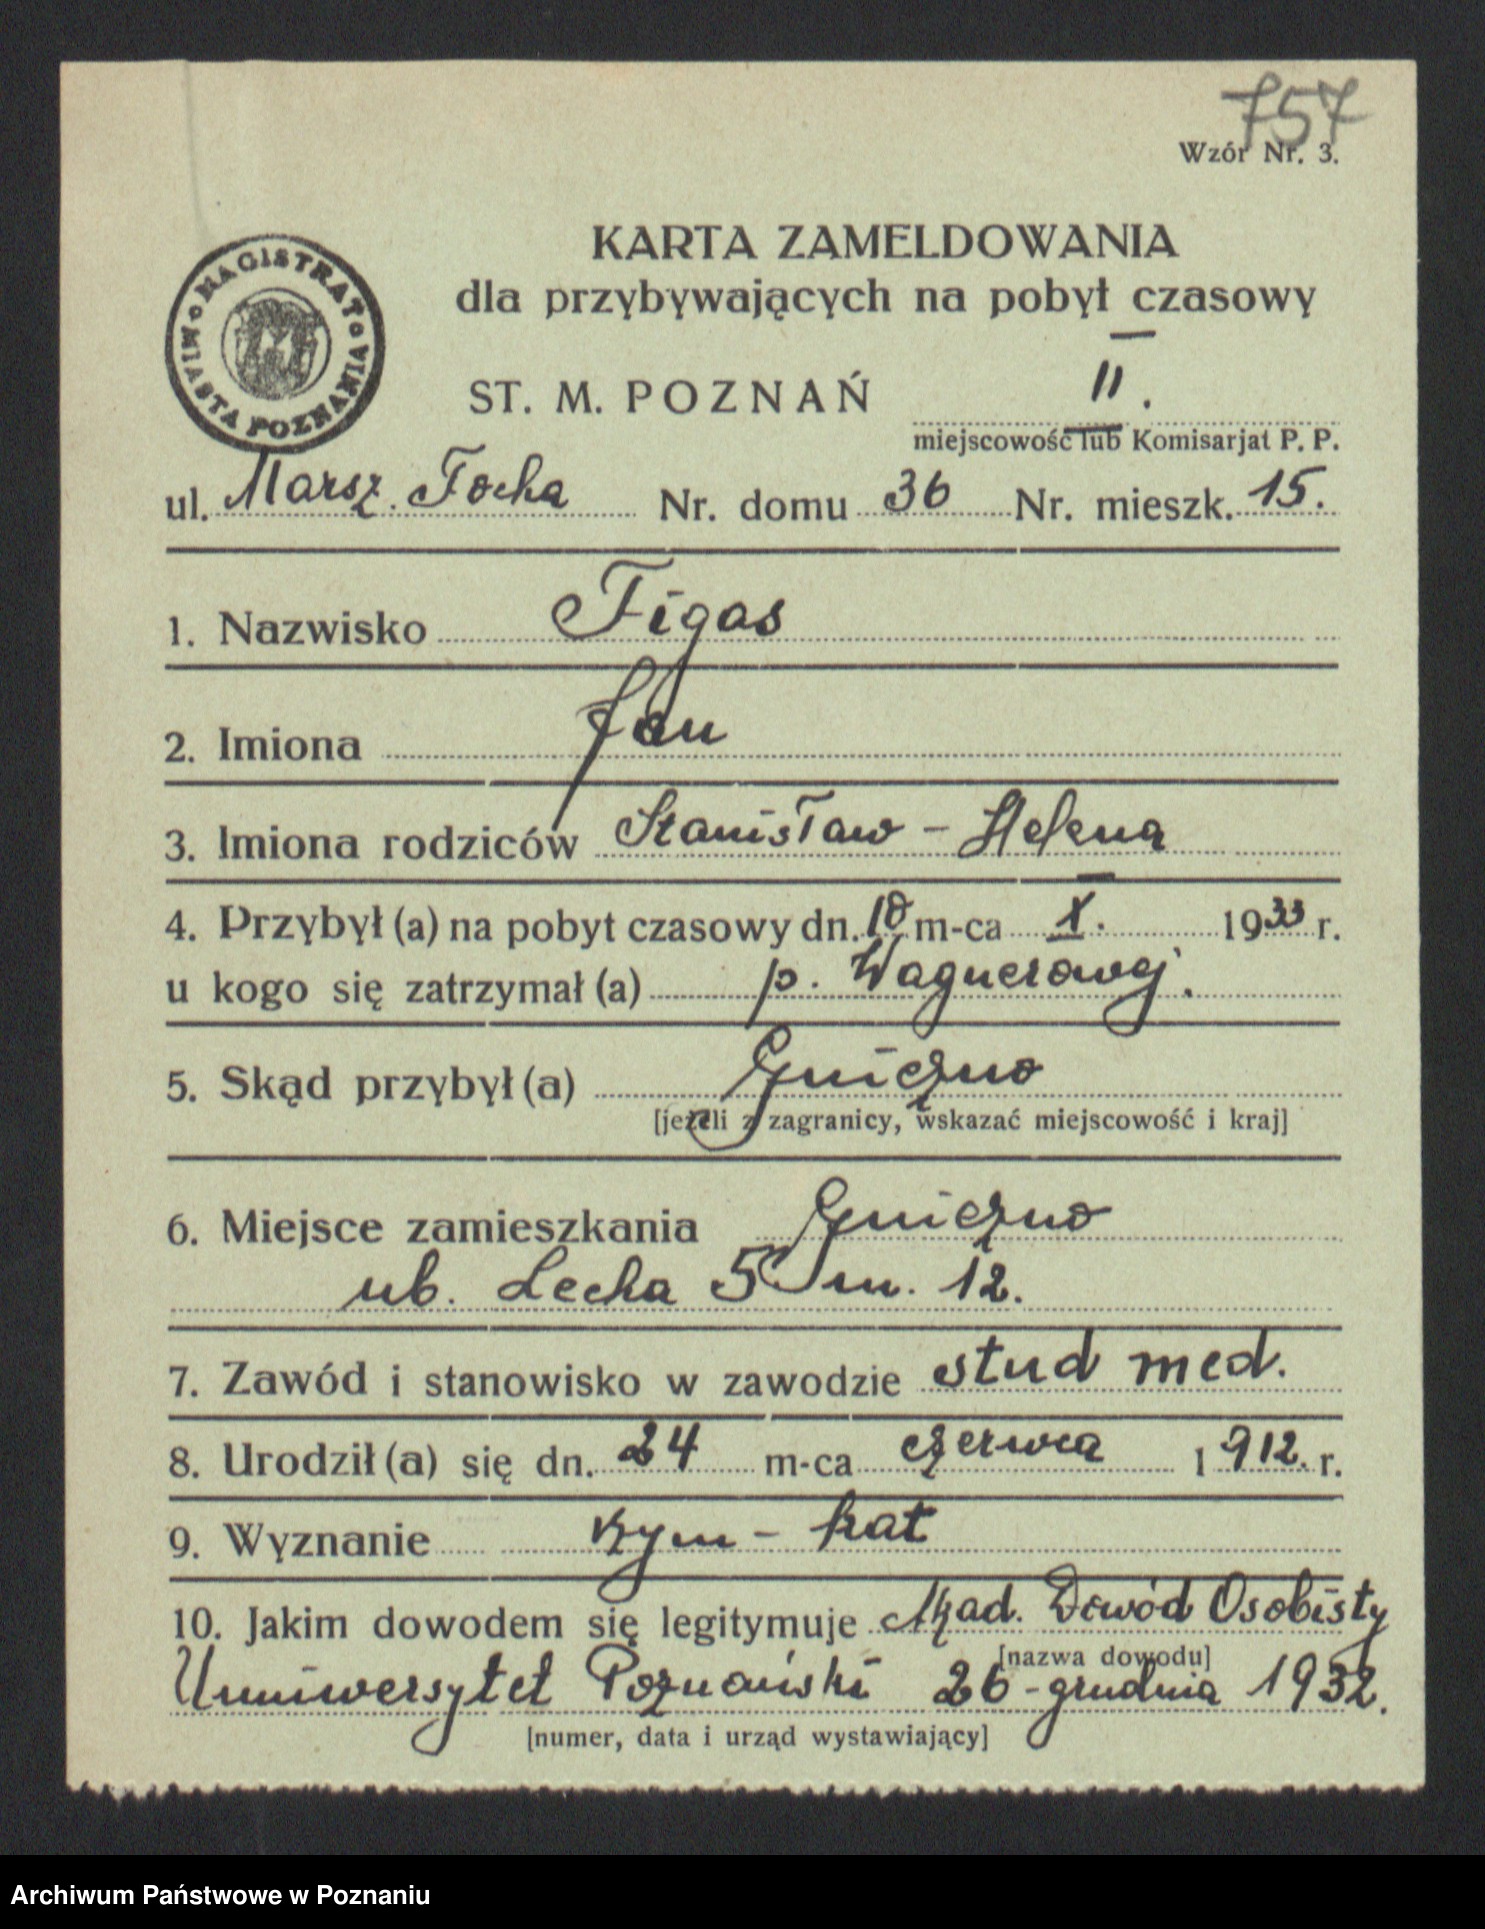 757
Wzór Nr. 3.
MAGISTRAT MIASTA POZNANIA
KARTA ZAMELDOWANIA
dla przybywających na pobyt czasowy
ST. M. POZNAŃ II.
miejscowość lub Komisarjat P. P.
ul. Marsz. Focha Nr. domu 36 Nr. mieszk. 15.
1. Nazwisko Figas
2. Imiona Jan
3. Imiona rodziców Stanisław - Helena
4. Przybył (a) na pobyt czasowy dn. 18 m-ca X. 1933 r.
u kogo się zatrzymał (a) p. Wagnerowej.
5. Skąd przybył (a) Gniezno
[jeżeli z zagranicy, wskazać miejscowość i kraj]
6. Miejsce zamieszkania Gniezno
ul. Lecha 5 m. 12.
7. Zawód i stanowisko w zawodzie stud med.
8. Urodził (a) się dn. 24 m-ca czerwca 1912. r.
9. Wyznanie rzym - kat
10. Jakim dowodem się legitymuje Akad. Dowód Osobisty
[nazwa dowodu]
Uniwersytet Poznański 26 - grudnia 1932.
[numer, data i urząd wystawiający]
Archiwum Państwowe w Poznaniu